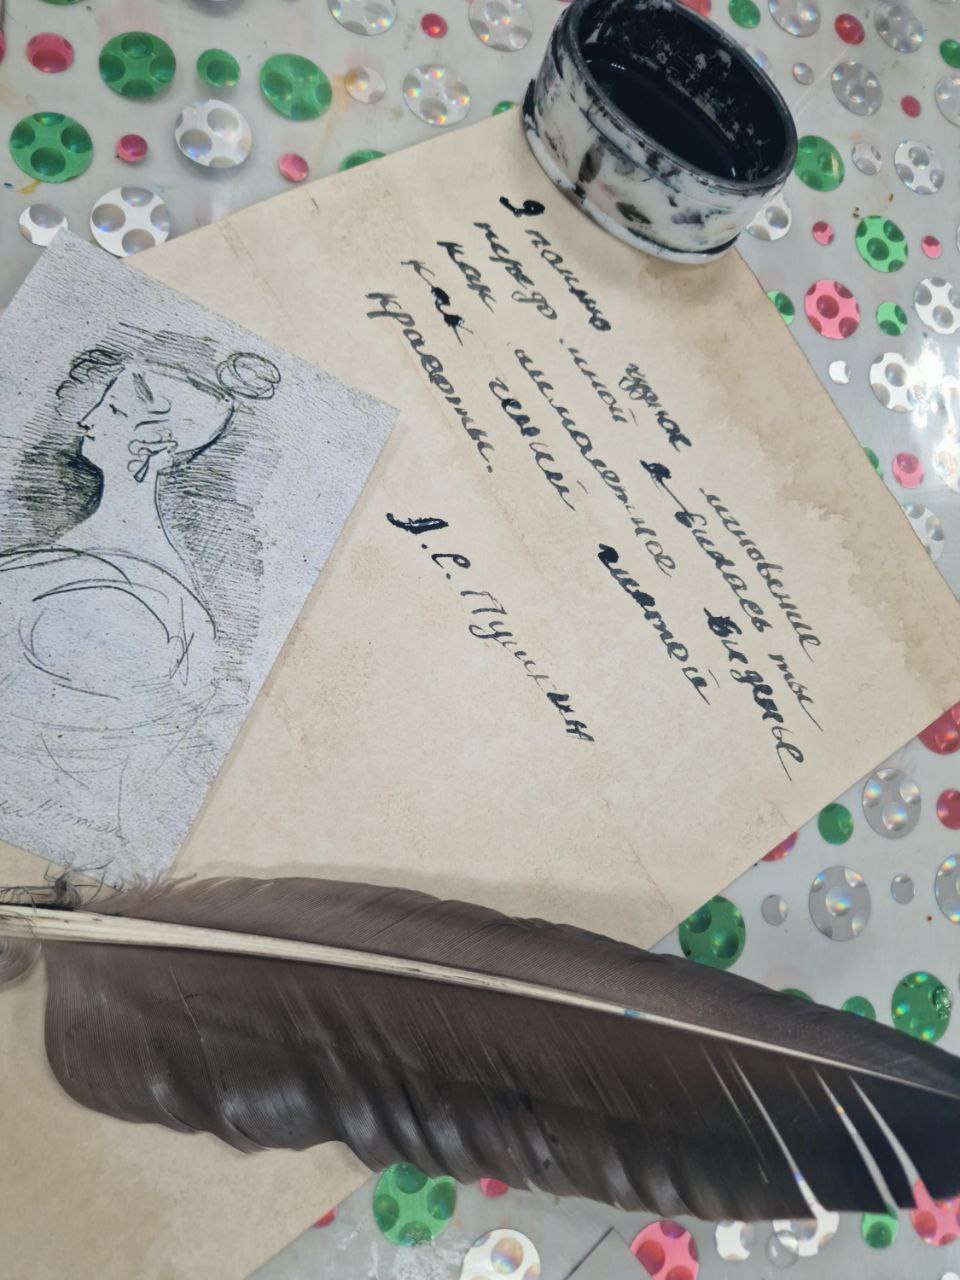 Я помню чудное мгновение
передо мной явилась ты
как мимолетное виденье
как гений чистой
красоты.
А.С. Пушкин